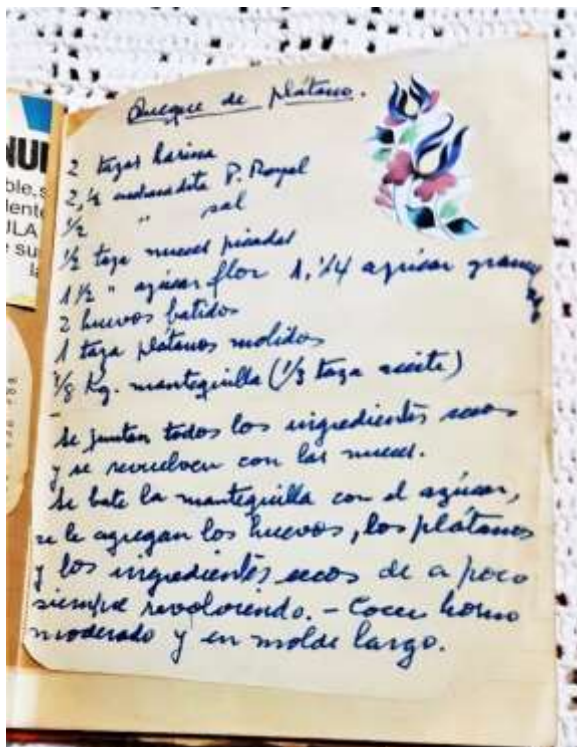 Queque de plátano.
2 tazas harina
2,½ cucharadita P. Royal
½ " sal
½ taza nueces picadas
1½ " azúcar flor 1,1/4 azúcar
2 huevos batidos
1 taza plátanos molidos
1/8 Kg. mantequilla (1/3 taza aceite)
Se juntan todos los ingredientes secos
y se revuelven con las nueces.
Se bate la mantequilla con el azúcar,
se le agregan los huevos, los plátanos
y los ingredientes secos de a poco
siempre revolviendo. - Cocer horno
moderado y en molde largo.
NU
ble, s
dente
ULA
su
la